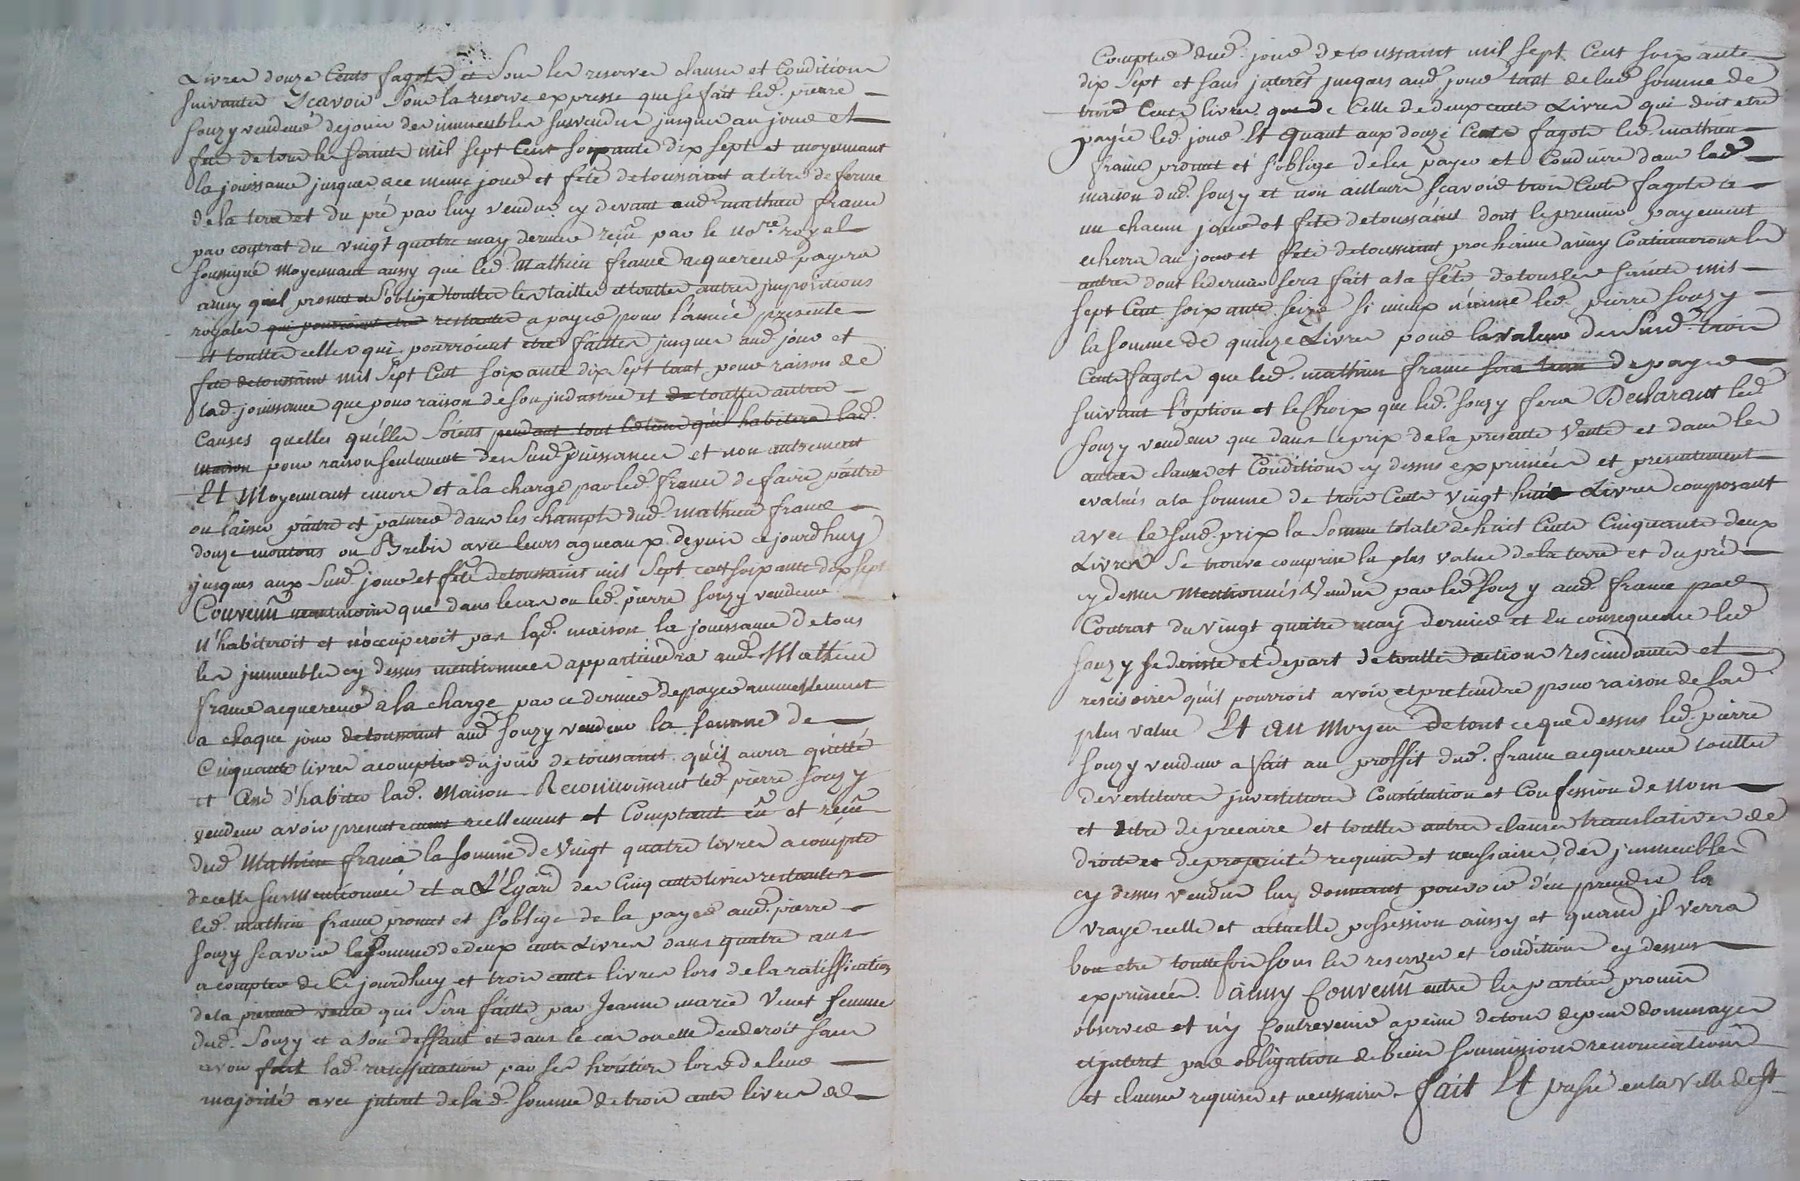 Livres douze Cents fagots et Sous les reserves clauses et Conditions
suivantes Scavoir Sous la reserve expresse que se fait led. pierre
souzy vendeur de jouir des immeubles susvendus jusques au jour et
fete de tous les saints mil sept Cent soixante dix sept et moyennant
la jouissance jusques a ce meme jour et fête de toussaint a titre de ferme
de la terre et du pré par luy vendus cy devant aud. mathieu france
par contrat du vingt quatre may dernier reçu par le no.re royal
soussigné Moyennant aussy que led. Mathieu france acquereur payera
ainsy qu'il promet et s'oblige touttes les tailles et touttes autres jmpositions
royales qui pourroient etre restantes a payer pour l'année presente
et touttes celles qui pourroient etre faittes jusques aud. jour et
fete de toussaint mil Sept Cent soixante dix Sept tant pour raison de
lad. jouissance que pour raison de son industrie et de touttes autres
Causes quelles quelles Soient pendant tout le tems qu'il habitera lad.
maison pour raison seulement des Susd. jouissances et non autrement
Et Moyennant encore et à la charge par led. france de faire paitre
ou laisser paitre et paturer dans les champts dud. mathieu france
douze moutons ou Brebis avec leurs agneaux depuis ce jourdhuy
jusques aux Susd. jour et fête de toussaint mil Sept cent soixante dix sept
Convenu neantmoins que dans le cas ou led. pierre souzy vendeur
n'habiteroit et n'occuperoit pas lad. maison la jouissance de tous
les jmmeubles cy dessus mentionnés appartiendra aud. Mathieu
france acquereur à la charge par ce dernier de payer annuellement
a chaque jour de toussaint aud. souzy vendeur la somme de
Cinquante livres a compter du jour de toussaint qu'il aura quitté
et Cessé d'habiter lad. Maison Reconnoissant led. pierre souzy
vendeur avoir presentement reellement et Comptant eû et reçu
dud. Mathieu france la somme de Vingt quatre livres a compte
de celle susmentionnée et a L'Egard des Cinq cents livres restantes
led. mathieu france promet et s'oblige de la payer aud. pierre
souzy scavoir la somme de deux cents Livres dans quatre ans
a compter de Ce jourdhuy et trois cents livres lors de la ratiffication
de la presente vente qui Sera faitte par Jeanne marie Venet femme
dud. Souzy et a son deffaut et dans le cas ou elle decederoit sans
avoir fait lad. ratiffication par ses heritiers lors de leur
majorité avec jnteret de la d. somme de trois cents livres a
Compter dud. jour de toussaint mil sept Cent soixante
dix Sept et sans jnterest jusques aud. jour tant de lad. somme de
trois Cents livres que de Celle de deux cents Livres qui doit etre
payée led. jour Et quant aux douze Cents fagots led. mathieu
france promet et s'oblige de les payer et Conduire dans lad.
maison dud. souzy et non ailleurs scavoir trois Cents fagots a
un chacun jour et fête de toussaint dont le premier payement
echerra au jour et fête de toussaint prochaine ainsy Continuer les
autres dont le dernier sera fait a la fête de tous les saints mil
sept Cent soixante seize si mieux n'aime led. pierre souzy
la somme de quinze Livres pour la valeur des Susd. trois
Cents fagots que led. mathieu france sera tenu de payer
suivant l'option et le Choix que led. souzy fera Declarant led.
souzy vendeur que dans le prix de la presente Vente et dans les
autres clauses et Conditions cy dessus exprimées et presentement
evalués a la somme de trois Cents vingt huit Livres composant
avec le susd. prix la Somme totale de huit Cents Cinquante deux
Livres Se trouve comprise la plus value de la terre et du pré
cy dessus Mentionnés Vendus par led. souzy aud. france par
Contrat du vingt quatre may dernier et En consequence led.
souzy se desiste et depart de touttes actions rescindantes et
rescisoires qu'il pourroit avoir et pretendre pour raison de lad.
plus value Et au Moyen de tout ce que dessus led. pierre
souzy vendeur a fait au proffit dud. france acquereur touttes
devestitures jnvestitures Constitution et Confession de nom
et titre de precaire et touttes autres clauses translatives de
droits et de proprieté requises et necessaires des jmmeubles
cy dessus vendus luy donnant pouvoir d'en prendre la
vraye reelle et actuelle possession ainsy et quand jl verra
bon etre touttefois sous les reserves et conditions cy dessus
exprimées. ainsy Convenu entre les parties promis
observer et n'y Contrevenir a peine de tous depens dommages
et jnterets par obligation de biens soumissions renonciations
et clauses requises et necessaires. fait Et passé en la Ville de St